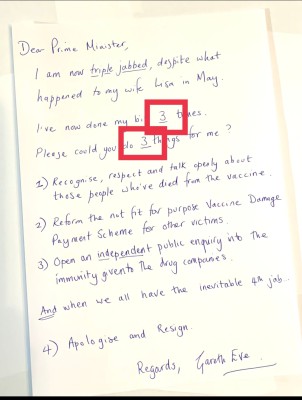 Dear Prime Minister,
I am now triple jabbed, despite what
happened to my wife Lisa in May.
I've now done my bit 3 times.
Please could you do 3 things for me?
1) Recognise, respect and talk openly about
those people who've died from the vaccine.
2) Reform the not fit for purpose Vaccine Damage
Payment Scheme for other victims.
3) Open an independent public enquiry into the
immunity given to the drug companies.
And when we all have the inevitable 4th jab..
4) Apologise and Resign.
Regards, Gareth Eve.